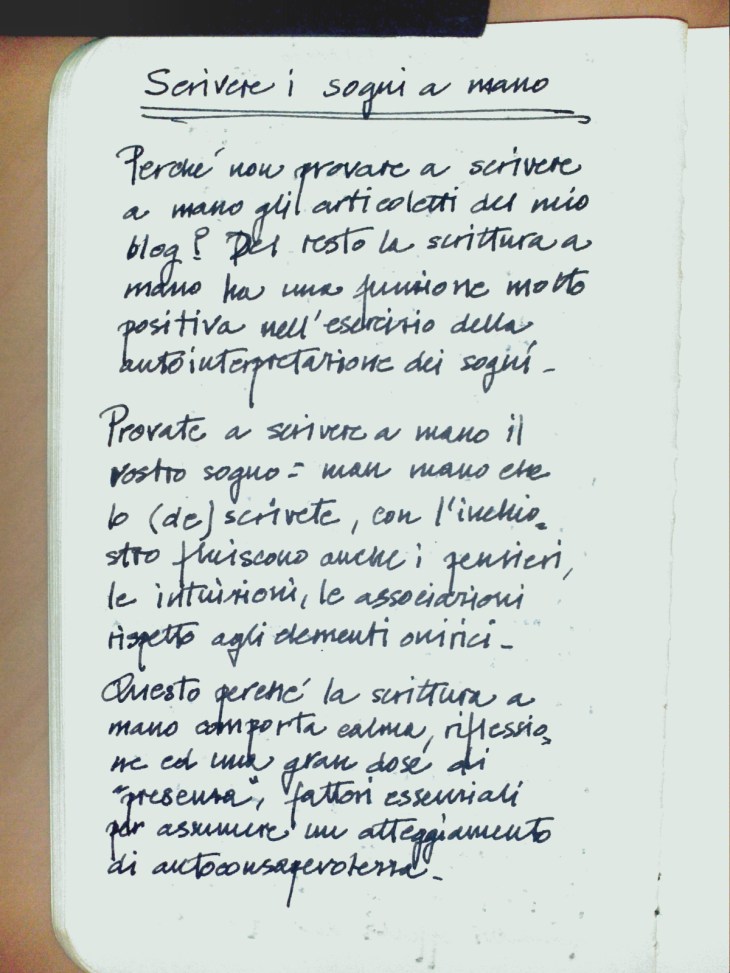 Scrivere i sogni a mano
Perché non provare a scrivere
a mano gli articoletti del mio
blog? Del resto la scrittura a
mano ha una funzione molto
positiva nell'esercizio della
autointerpretazione dei sogni -
Provate a scrivere a mano il
vostro sogno = man mano che
lo (de) scrivete, con l'inchio=
stro fluiscono anche i pensieri,
le intuizioni, le associazioni
rispetto agli elementi onirici -
Questo perché la scrittura a
mano comporta calma, riflessio=
ne ed una gran dose di
"presenza", fattori essenziali
per assumere un atteggiamento
di autoconsapevolezza -